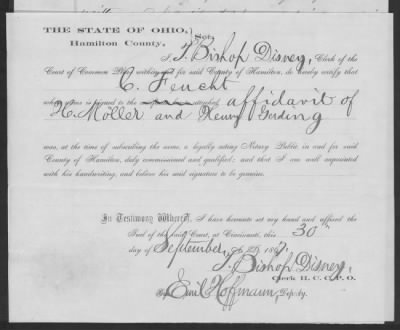 THE STATE OF OHIO,
Hamilton County,
Sct.
I, T. Bishop Disney, Clerk of the
Court of Common Pleas within and for said County of Hamilton, do hereby certify that
C. Feucht
whose name is signed to the attached affidavit of
H. Möller and Henry Girding
was, at the time of subscribing the same, a legally acting Notary Public in and for said
County of Hamilton, duly commissioned and qualified; and that I am well acquainted
with his handwriting, and believe his said signature to be genuine.
In Testimony Whereof, I have hereunto set my hand and affixed the
Seal of the said Court, at Cincinnati, this 30th
day of September, A. D. 186
T. Bishop Disney,
Clerk H. C. C. P. O.
Emil Hoffmann, Deputy.